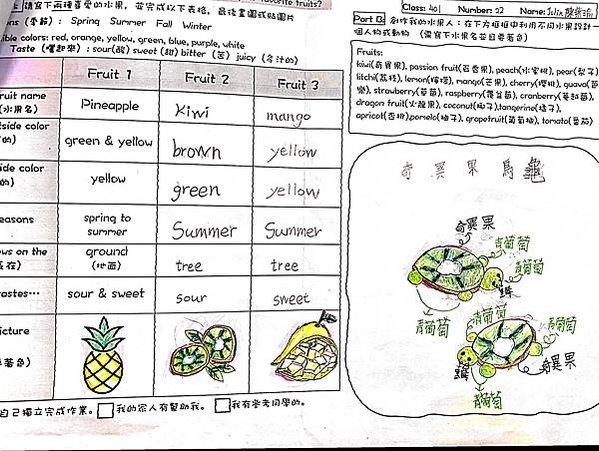 favorite fruits?
請寫下兩種喜愛的水果，並完成以下表格，最後畫圖或貼圖片
ons (季節): Spring Summer Fall Winter
ible colors: red, orange, yellow, green, blue, purple, white
Taste (嚐起來): sour(酸) sweet (甜) bitter (苦) juicy (多汁的)
Fruit 1 Fruit 2 Fruit 3
ruit name (水果名) Pineapple Kiwi mango
tside color 的) green & yellow brown yellow
ide color 的) yellow green yellow
easons spring to summer Summer Summer
ows on the 長在) ground (地面) tree tree
astes… sour & sweet sour sweet
icture 著色)
自己獨立完成作業。 我的家人有幫助我。 我有參考同學的。
Class: 401 Number: 22 Name: Julia
Part B: 創作我的水果人：在下方框中利用不同水果設計一
個人物或動物 (需寫下水果名並且要著色)
Fruits:
kiwi(奇異果), passion fruit(百香果), peach(水蜜桃), pear(梨子)
litchi(荔枝), lemon(檸檬), mango(芒果), cherry(櫻桃), guava(芭
樂), strawberry(草莓), raspberry(覆盆莓), cranberry(蔓越莓),
dragon fruit(火龍果), coconut(椰子),tangerine(橘子),
apricot(杏桃),pomelo(柚子), grapefruit(葡萄柚), tomato(番茄)
奇異果烏龜
奇異果
青葡萄
青葡萄
青葡萄
青葡萄
青葡萄
奇異果
青葡萄